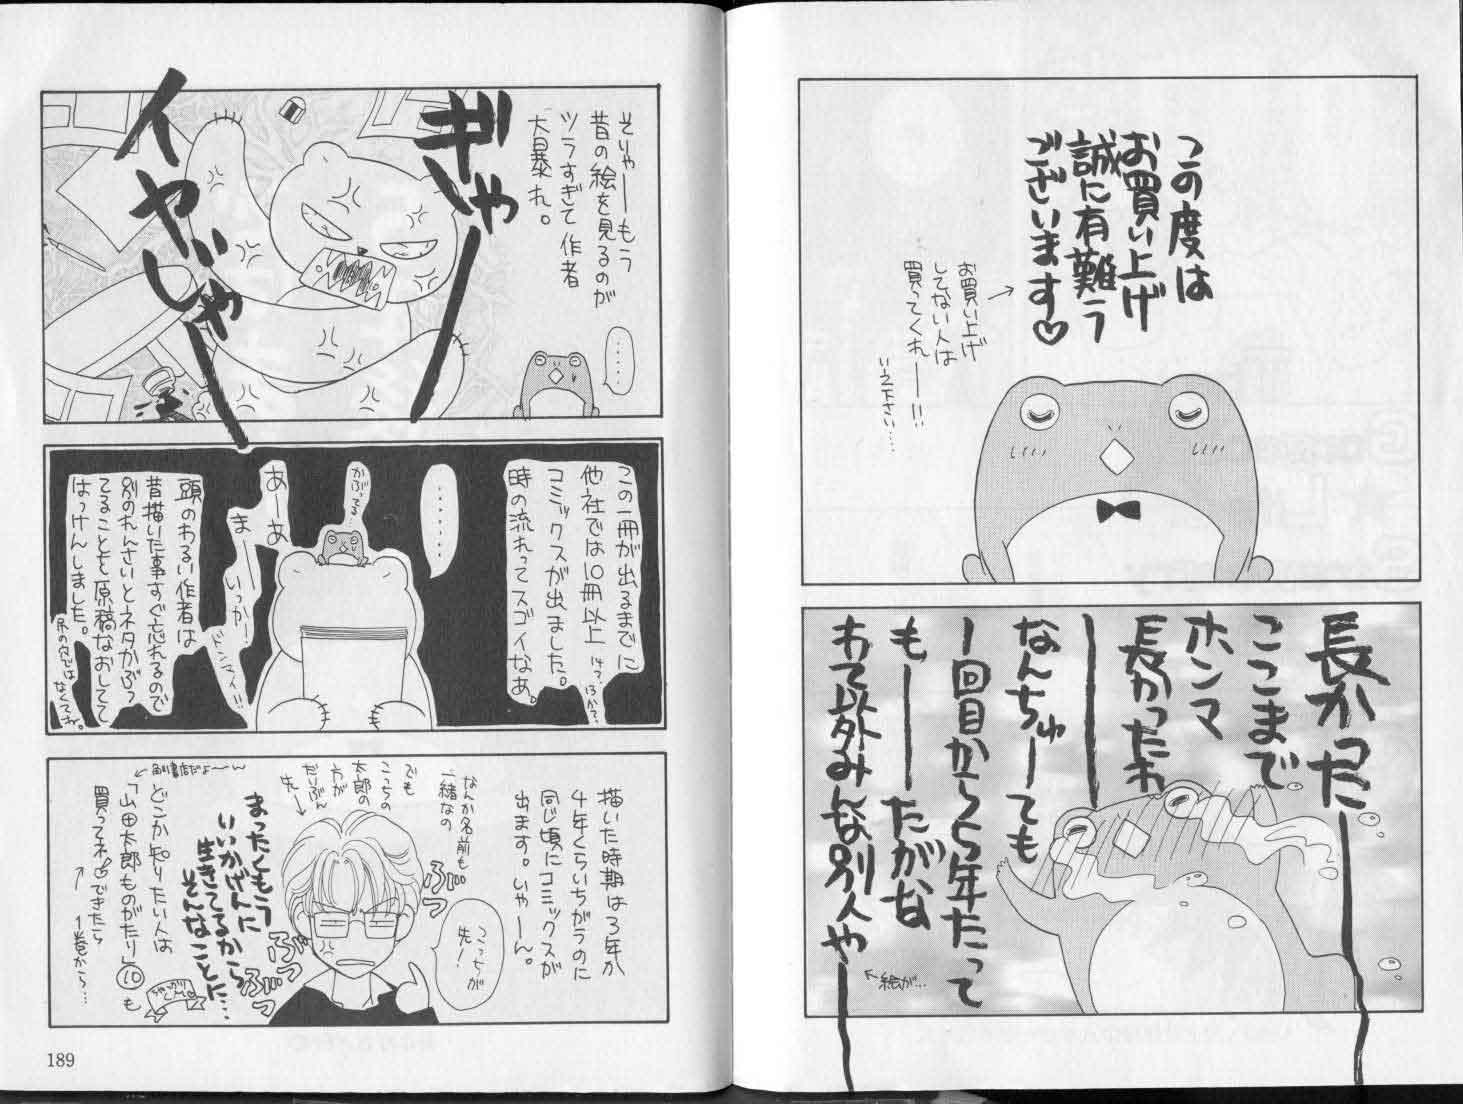 この度は
お買い上げ
誠に有難う
ございます♡
お買い上げ
してない人は
買ってくれーー!!
い え下さい…
長かったー
ここまで
ホンマ
長かったわー
なんちゅーても
1回目から5年たって
もーーたがな
わて以外みんな別人やー
←絵が…
ぎゃー
イヤじゃー
そりゃーもう
昔の絵を見るのが
ツラすぎて作者
大暴れ。
……
この一冊が出るまでに
他社では10冊以上
14?13か?
コミックスが出ました。
時の流れってスゴイなぁ。
……
かぶってる…
あーあ
まーいっかー
ドンマイ!!
頭のわるい作者は
昔描いた事すぐ忘れるので
別のれんさいとネタかぶっ
てることを原稿なおしてて
はっけんしました。
尻の穴では
なくてね。
描いた時期は3年か
4年くらいちがうのに
同じ頃にコミックスが
出ます。いやーん。
なんか名前も
一緒なの
でも
こっちの
太郎の
方が
だいぶん
先ー
こっちが
先!
ぶっ
ぶっ
ぶっ
まったくもう
いいかげんに
生きてるから
そんなことに…
どこか知りたい人は
←角川書店だよーん
「山田太郎ものがたり」⑩も
買ってネ♡できたら
1巻から…
189